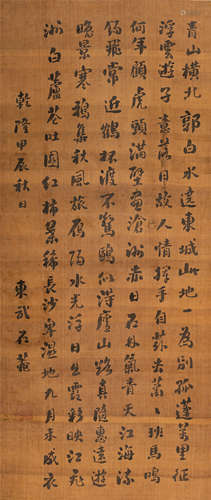 青山橫北郭白水遶東城此地一為別孤蓬萬里征
浮雲遊子意落日故人情揮手自茲去蕭〻班馬鳴
何年顧虎頭滿壁畫滄洲赤日石林氣青天江海流
錫飛常近鶴杯渡不驚鷗似得廬山路真隨惠遠遊
晚景寒鴉集秋風旅雁歸水光浮日出霞彩映江飛
洲白蘆花吐園紅柿葉稀長沙卑濕地九月未成衣
乾隆甲辰秋日 東武石菴